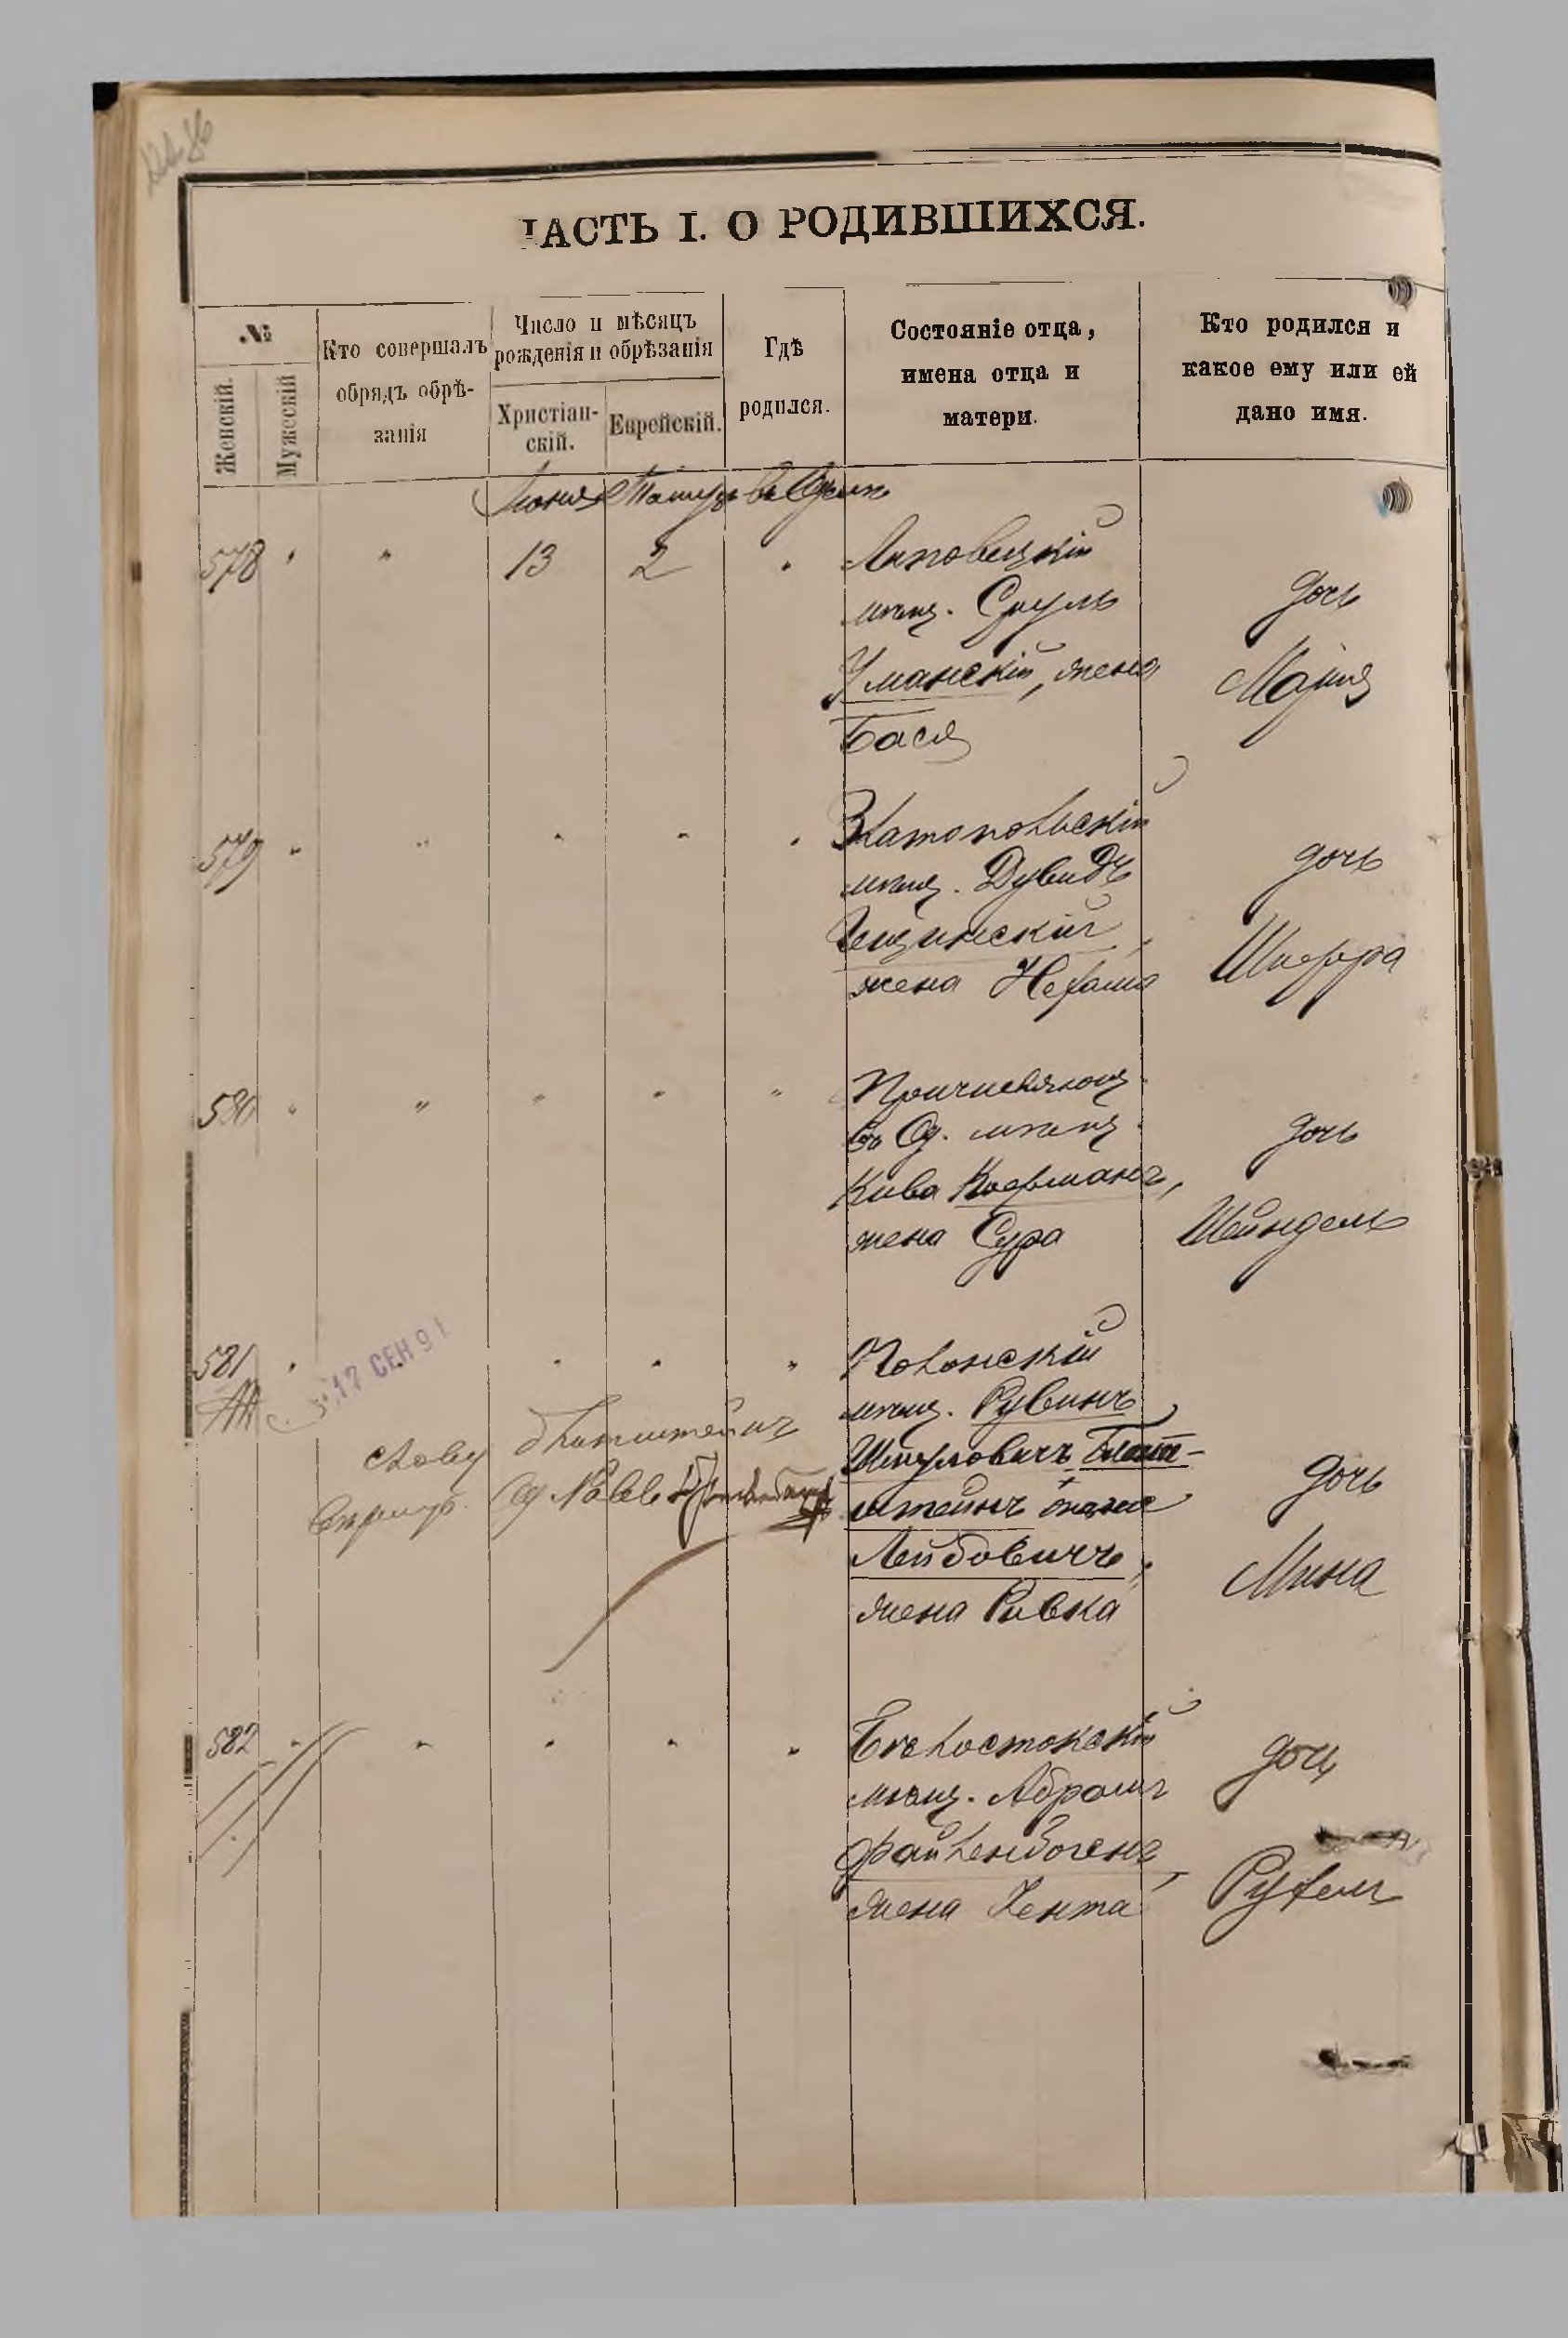 ЧАСТЬ I. О РОДИВШИХСЯ.
№
Женскій.
Мужескій
Кто совершалъ
обрядъ обрѣ-
занія
Число и мѣсяцъ
рожденія и обрѣзанія
Христіан-
скій.
Еврейскій.
Гдѣ
родился.
Состояніе отца,
имена отца и
матери.
Кто родился и
какое ему или ей
дано имя.
Іюня Тамуз въ Одессѣ
578 " " 13 2 "
Липовецкій
мѣщ. Сруль
Уманскій, жена
Бася
дочь
Марія
579 " " " " "
Златопольскій
мѣщ. Дувидъ
жена Нехама
дочь
Шифра
580 " " " " "
Причисляющ.
въ Од. мѣщ.
Кива Кофманъ,
жена Сура
дочь
Шейндель
581 " " " "
17 СЕН 91
Полонскій
мѣщ. Рувинъ
Шмуловичъ Блат-
штейнъ онъ же
Лейбовичъ,
жена Ривка
дочь
Мина
слову Блатштейнъ
582 " " " " "
Бѣлостокскій
мѣщ. Абрамъ
Файленбогенъ,
жена Хента
дочь
Рухель